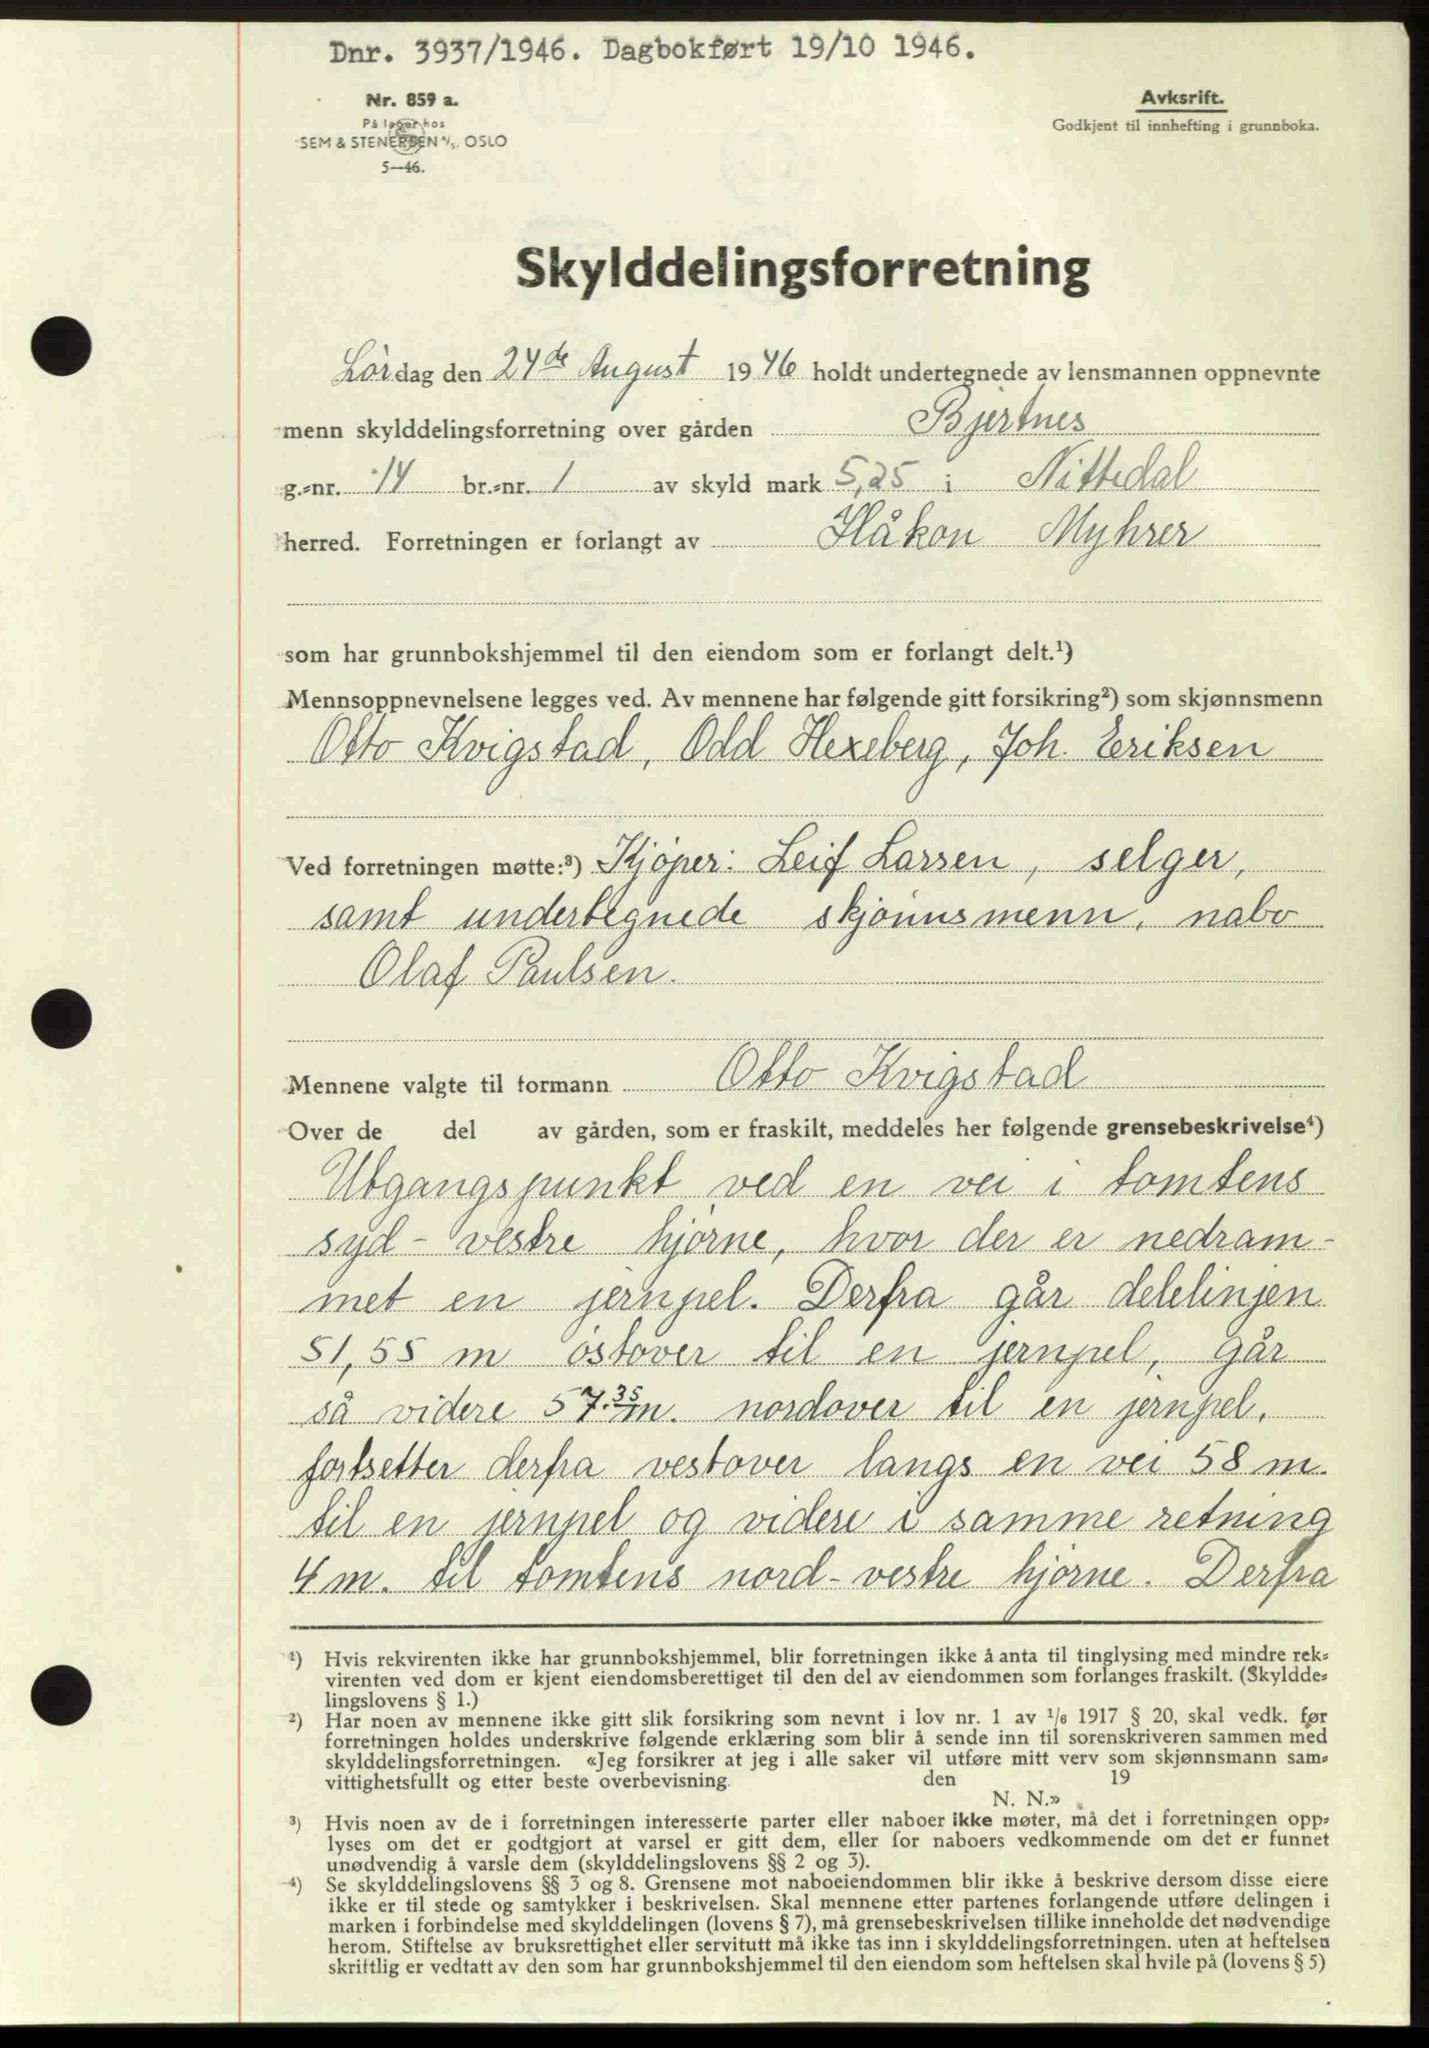 Dnr. 3937/1946. Dagbokført 19/10 1946.
Nr. 859 a.
På lager hos
SEM & STENERSEN A/S, OSLO
5—46.
Avksrift.
Godkjent til innhefting i grunnboka.
Skylddelingsforretning
Lördag den 24de August 1946 holdt undertegnede av lensmannen oppnevnte
menn skylddelingsforretning over gården Bjertnes
g.-nr. 14 br.-nr. 1 av skyld mark 5,25 i Nittedal
herred. Forretningen er forlangt av Håkon Myhrer
som har grunnbokshjemmel til den eiendom som er forlangt delt.¹)
Mennsoppnevnelsene legges ved. Av mennene har følgende gitt forsikring²) som skjønnsmenn
Otto Kvigstad, Odd Hexeberg, Joh. Eriksen
Ved forretningen møtte:³) Kjöper: Leif Larsen, selger,
samt undertegnede skjönnsmenn, nabo
Olaf Paulsen.
Mennene valgte til formann Otto Kvigstad
Over de del av gården, som er fraskilt, meddeles her følgende grensebeskrivelse⁴)
Utgangspunkt ved en vei i tomtens
syd-vestre hjörne, hvor der er nedram-
met en jernpel. Derfra går delelinjen
51,55 m östover til en jernpel, går
så videre 57.35 m. nordover til en jernpel,
fortsetter derfra vestover langs en vei 58 m.
til en jernpel og videre i samme retning
4 m. til tomtens nord-vestre hjörne. Derfra
¹) Hvis rekvirenten ikke har grunnbokshjemmel, blir forretningen ikke å anta til tinglysing med mindre rek-
virenten ved dom er kjent eiendomsberettiget til den del av eiendommen som forlanges fraskilt. (Skyldde-
lingslovens § 1.)
²) Har noen av mennene ikke gitt slik forsikring som nevnt i lov nr. 1 av ¹/₆ 1917 § 20, skal vedk. før
forretningen holdes underskrive følgende erklæring som blir å sende inn til sorenskriveren sammen med
skylddelingsforretningen. «Jeg forsikrer at jeg i alle saker vil utføre mitt verv som skjønnsmann sam-
vittighetsfullt og etter beste overbevisning. den 19
N. N.»
³) Hvis noen av de i forretningen interesserte parter eller naboer ikke møter, må det i forretningen opp-
lyses om det er godtgjort at varsel er gitt dem, eller for naboers vedkommende om det er funnet
unødvendig å varsle dem (skylddelingslovens §§ 2 og 3).
⁴) Se skylddelingslovens §§ 3 og 8. Grensene mot naboeiendommen blir ikke å beskrive dersom disse eiere
ikke er til stede og samtykker i beskrivelsen. Skal mennene etter partenes forlangende utføre delingen i
marken i forbindelse med skylddelingen (lovens § 7), må grensebeskrivelsen tillike inneholde det nødvendige
herom. Stiftelse av bruksrettighet eller servitutt må ikke tas inn i skylddelingsforretningen. uten at heftelsen
skriftlig er vedtatt av den som har grunnbokshjemmel til den eiendom som heftelsen skal hvile på (lovens § 5)